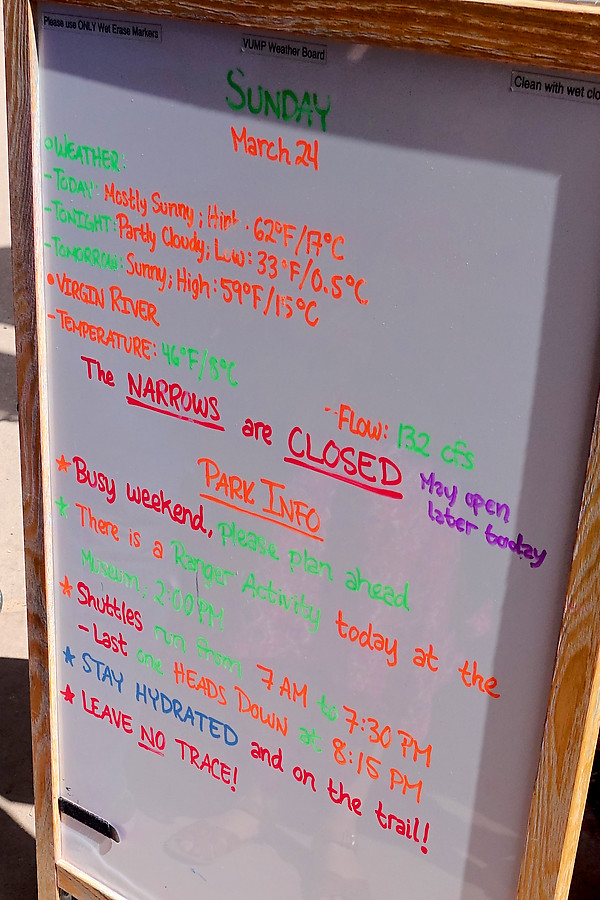 Please use ONLY Wet Erase Markers
VUMP Weather Board
Clean with wet clo
SUNDAY
March 24
• WEATHER:
- TODAY: Mostly Sunny; High: 62°F/17°C
- TONIGHT: Partly Cloudy; Low: 33°F/0.5°C
- TOMORROW: Sunny; High: 59°F/15°C
• VIRGIN RIVER
- TEMPERATURE: 46°F/8°C
-- FLOW: 132 cfs
The NARROWS are CLOSED
May open
later today
PARK INFO
* Busy weekend, please plan ahead
* There is a Ranger Activity today at the
Museum, 2:00 PM
* Shuttles run from 7 AM to 7:30 PM
- Last one HEADS DOWN at 8:15 PM
* STAY HYDRATED and on the trail!
* LEAVE NO TRACE!